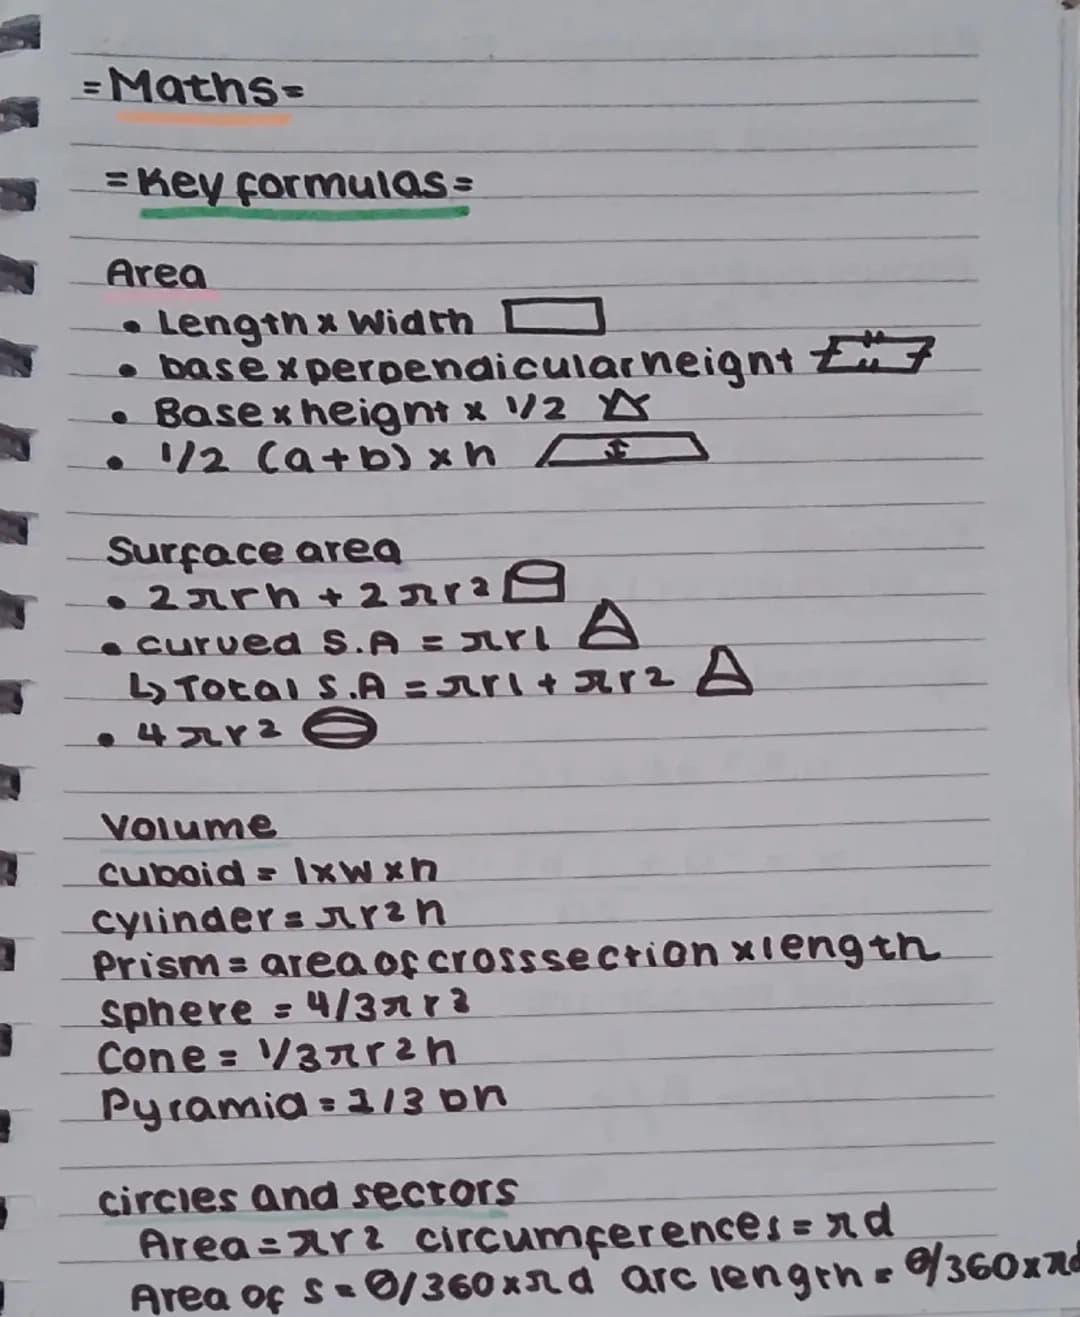 =Maths=
=Key formulas=
Area
• Length x Width
• base x perpendicular height
• Base x height x 1/2
• 1/2 (a+b) x h
Surface area
• 2πrh + 2πr2
• curved S.A = πrl
↳ Total S.A = πrl + πr2
• 4πr2
Volume
cuboid = lxwxh
cylinder = πr2h
Prism = area of crosssection x length
sphere = 4/3πr3
Cone = 1/3πr2h
Pyramid = 1/3 bh
circles and sectors
Area = πr2 circumferences = πd
Area of s = θ/360 x πd arc length = θ/360 x πd